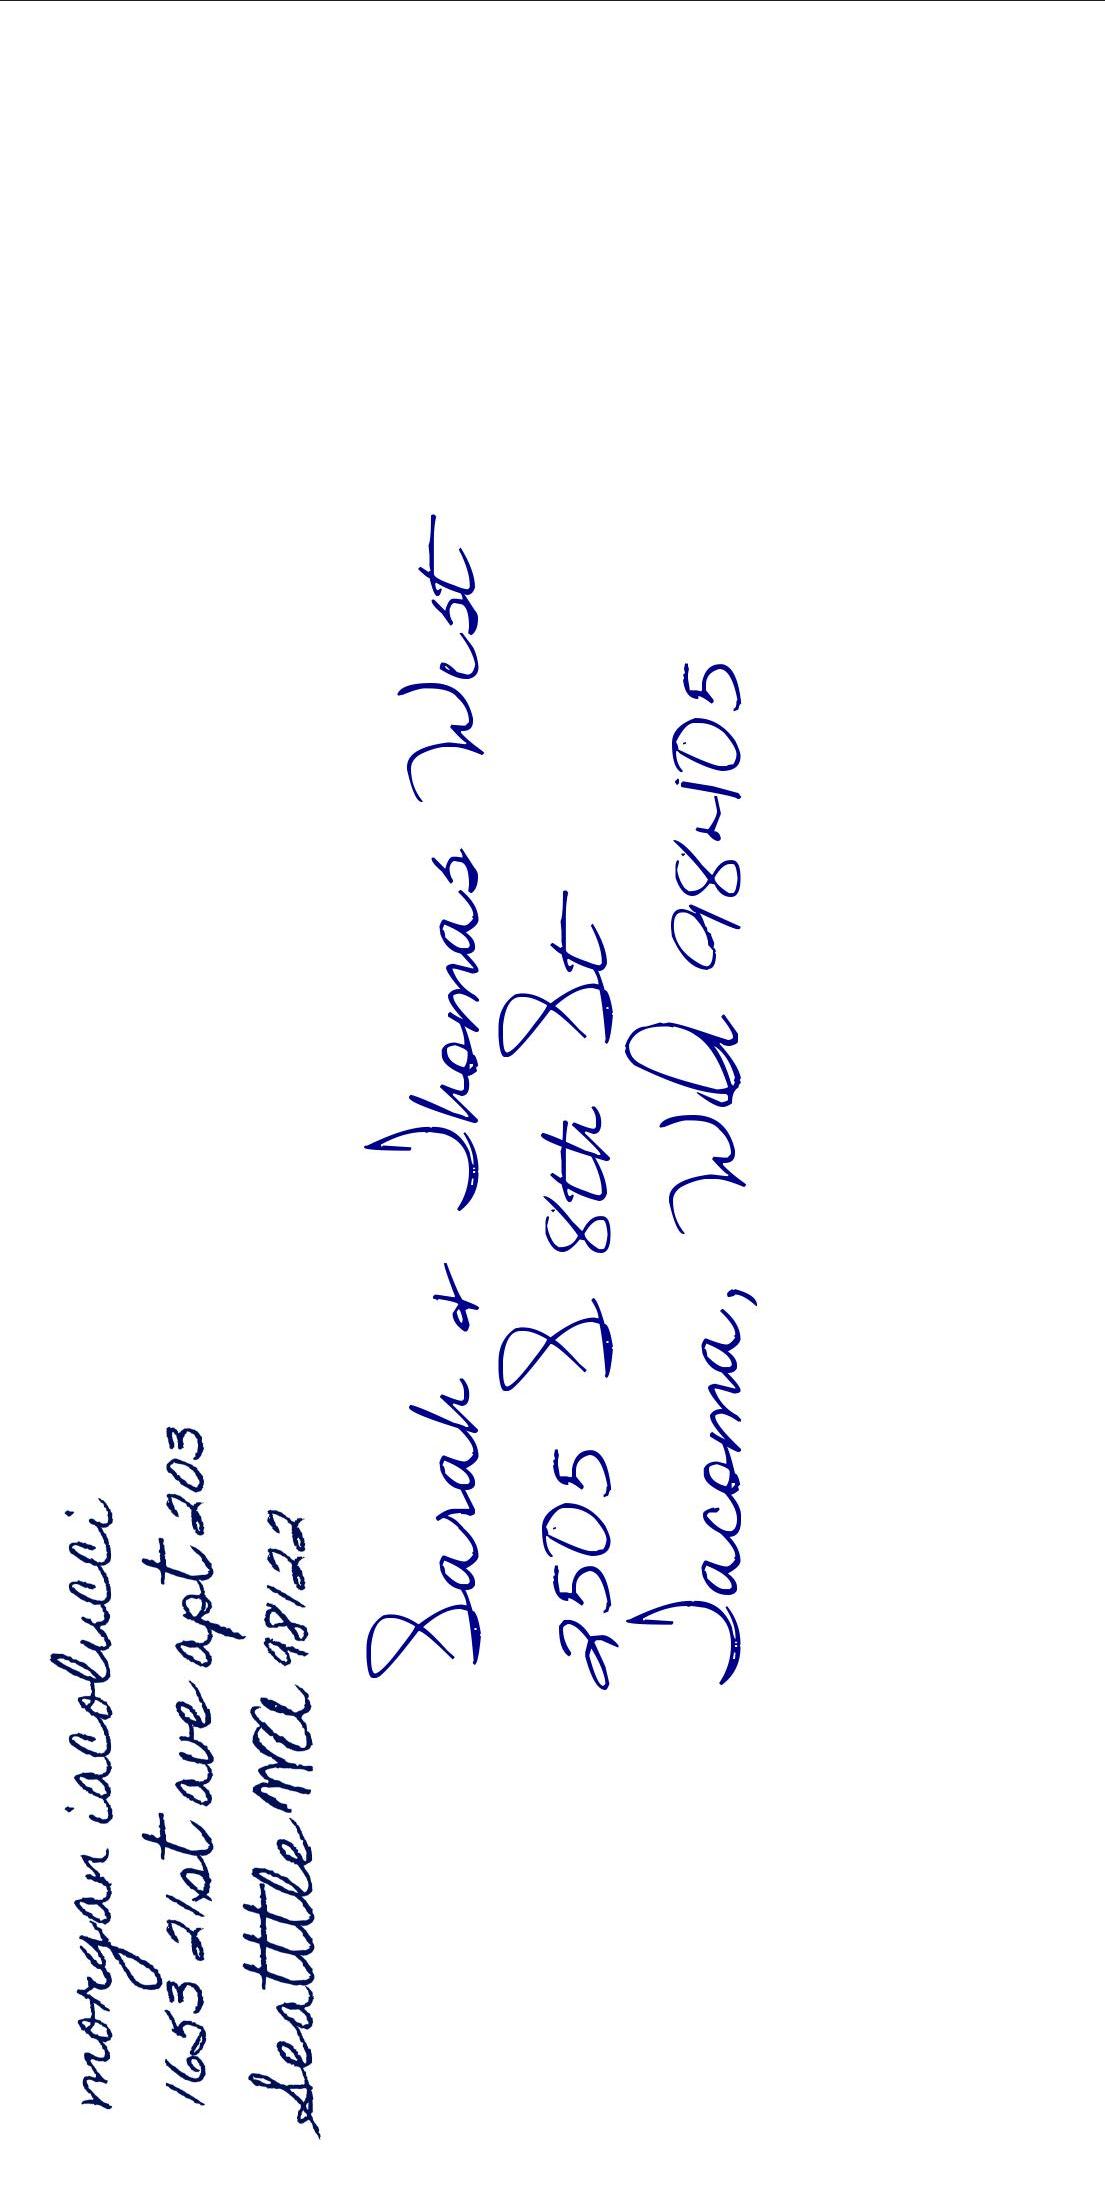 morgan iacolucci
1653 21st ave apt 203
Seatttle WA 98122
Sarah & Thomas West
2505 S 8th St
Tacoma, WA 98405